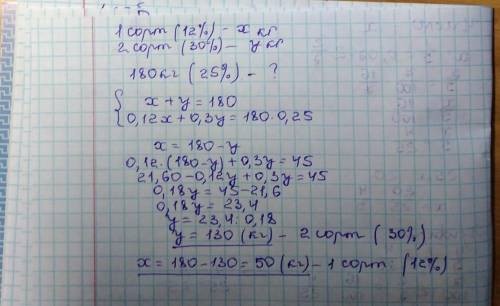 1 сорт (12%) - x кг
2 сорт (30%) - y кг
180 кг (25%) - ?
{ x + y = 180
0,12x + 0,3y = 180·0,25
x = 180 - y
0,12·(180-y) + 0,3y = 45
21,60 - 0,12y + 0,3y = 45
0,18y = 45 - 21,6
0,18y = 23,4
y = 23,4 : 0,18
y = 130 (кг) - 2 сорт (30%)
x = 180 - 130 = 50 (кг) - 1 сорт (12%)